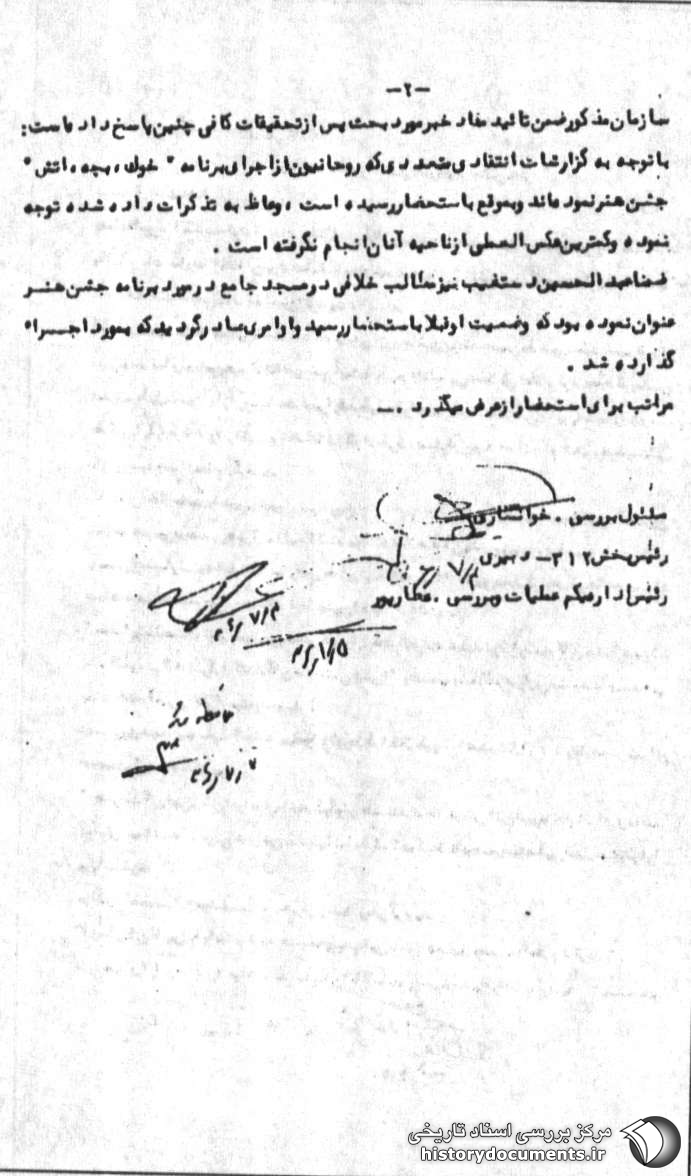 -۲-
سازمان مذکور ضمن تائید مفاد خبر مورد بحث پس از تحقیقات کافی چنین پاسخ داده است:
با توجه به گزارشات انتقادی متعددی که روحانیون از اجرای برنامه " خوك ، بچه ، اتش "
جشن هنر نموده اند و بموقع باستحضار رسیده است ، وعاظ به تذکرات داده شده توجه
نموده و کمترین عکس العملی از ناحیه آنان انجام نگرفته است .
ضمنا عبدالحسین دستغیب نیز مطالب خلافی در مسجد جامع در مورد برنامه جشن هنر
عنوان نموده بود که وضعیت او قبلا باستحضار رسید و اوامری صادر گردید که بمورد اجراء
گذارده شد .
مراتب برای استحضار از عرض میگذرد . ــ
مسئول بررسی . خوانساری
رئیس بخش ۳۱۲ ــ دبیری
رئیس اداره یکم عملیات و بررسی . عطارپور
ملاحظه شد
مرکز بررسی اسناد تاریخی
historydocuments.ir